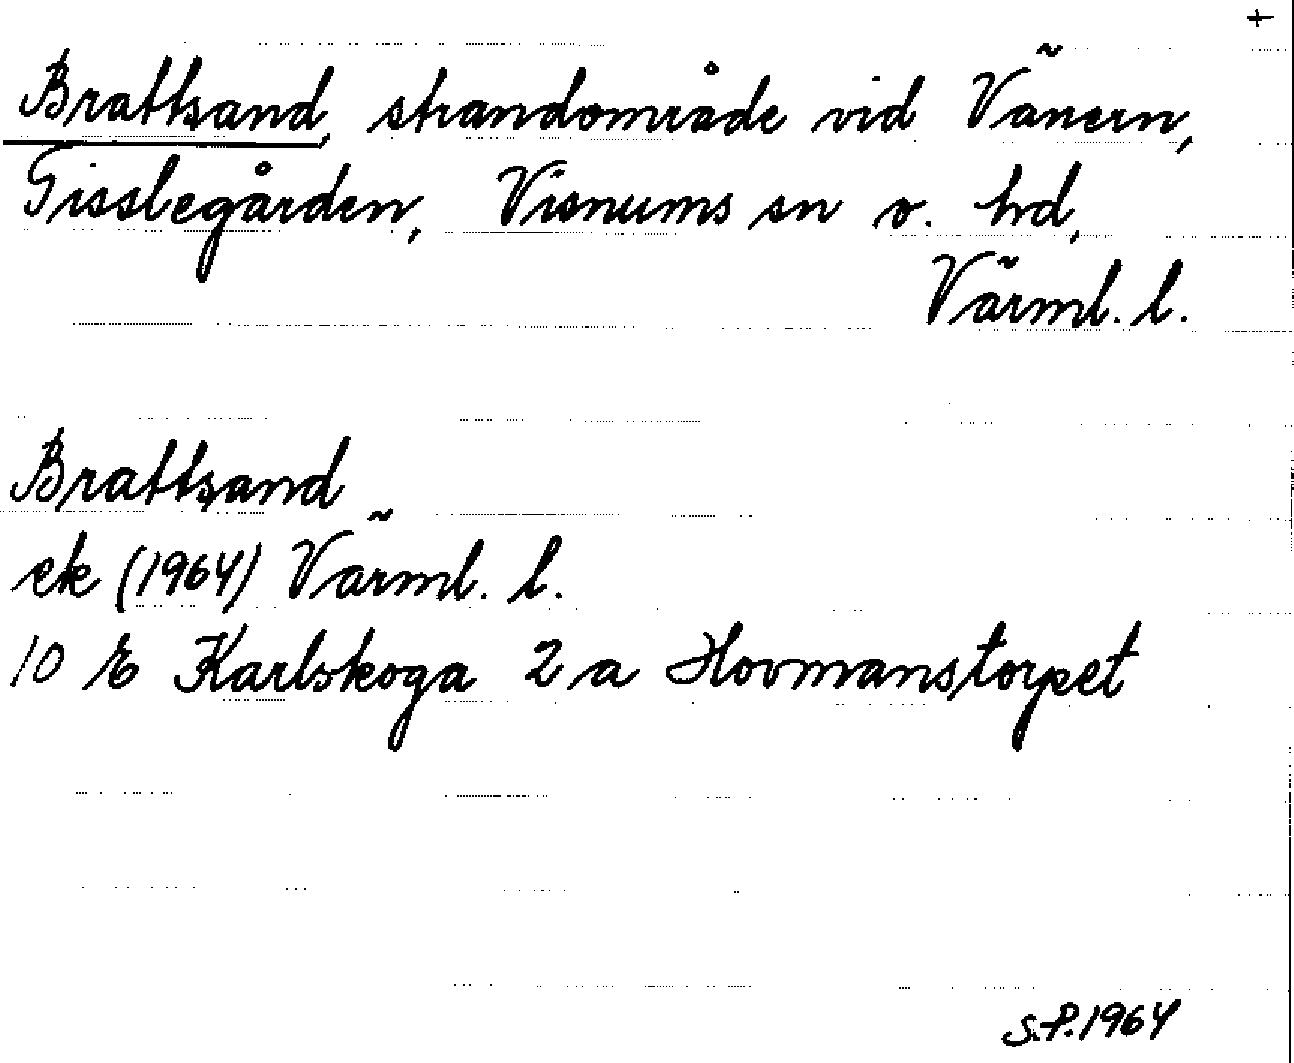 +
Brattsand, strandområde vid Vänern,
Gisslegården, Visnums sn o. hd,
Värml. l.
Brattsand
ek (1964) Värml. l.
10 E Karlskoga 2 a Hovmanstorpet
S.P. 1964